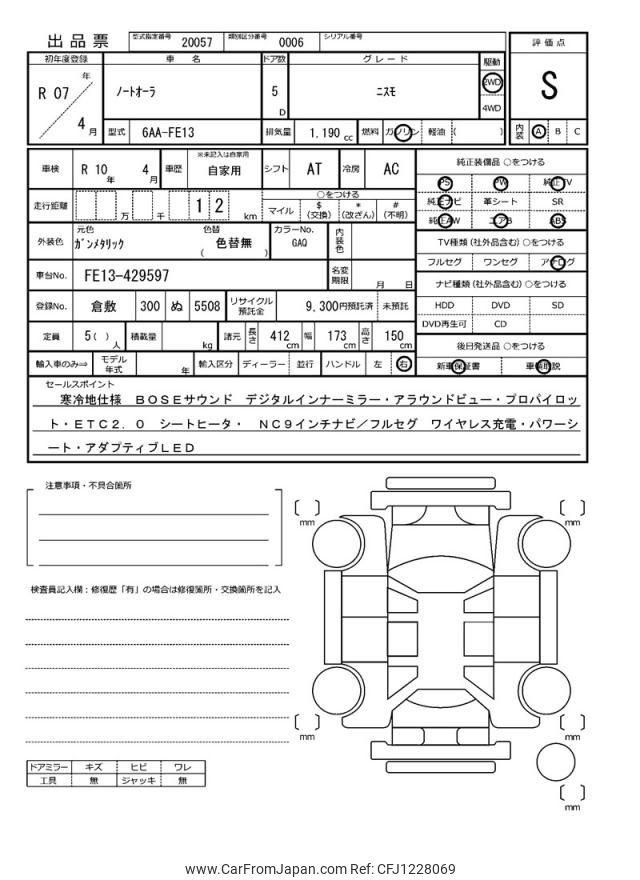 出品票
型式指定番号 20057 類別区分番号 0006 シリアル番号
評価点
S
内装 A B C
初年度登録 車名 ドア数 グレード 駆動
R 07 年 4 月
ノートオーラ
5 D
ニスモ
2WD
4WD
型式 6AA-FE13 排気量 1.190 cc 燃料 ガソリン 軽油 ( )
車検 R 10 年 4 月 車歴 ※未記入は自家用 自家用 シフト AT 冷房 AC
走行距離 万 千 1 2 km
○をつける
マイル $ (交換) * (改ざん) # (不明)
外装色 元色 ガンメタリック 色替 色替無 ( ) カラーNo. GAQ 内装色
車台No. FE13-429597 名変期限 月 日
登録No. 倉敷 300 ぬ 5508 リサイクル預託金 9,300円預託済 未預託
定員 5( ) 人 積載量 kg 諸元 長さ 412 cm 幅 173 cm 高さ 150 cm
輸入車のみ⇒ モデル年式 年 輸入区分 ディーラー 並行 ハンドル 左 右
純正装備品 ○をつける
PS PW 純正TV
純正ナビ 革シート SR
純正AW エアB ABS
TV種類 (社外品含む) ○をつける
フルセグ ワンセグ アナログ
ナビ種類 (社外品含む) ○をつける
HDD DVD SD
DVD再生可 CD
後日発送品 ○をつける
新車保証書 車輌取説
セールスポイント
寒冷地仕様 BOSEサウンド デジタルインナーミラー・アラウンドビュー・プロパイロッ
ト・ETC2.0 シートヒータ・ NC9インチナビ/フルセグ ワイヤレス充電・パワーシ
ート・アダプティブLED
注意事項・不具合箇所
検査員記入欄:修復歴「有」の場合は修復箇所・交換箇所を記入
ドアミラー キズ ヒビ ワレ
工具 無 ジャッキ 無
[ ] mm
[ ] mm
[ ] mm
[ ] mm
[ ] mm
www.CarFromJapan.com Ref: CFJ1228069